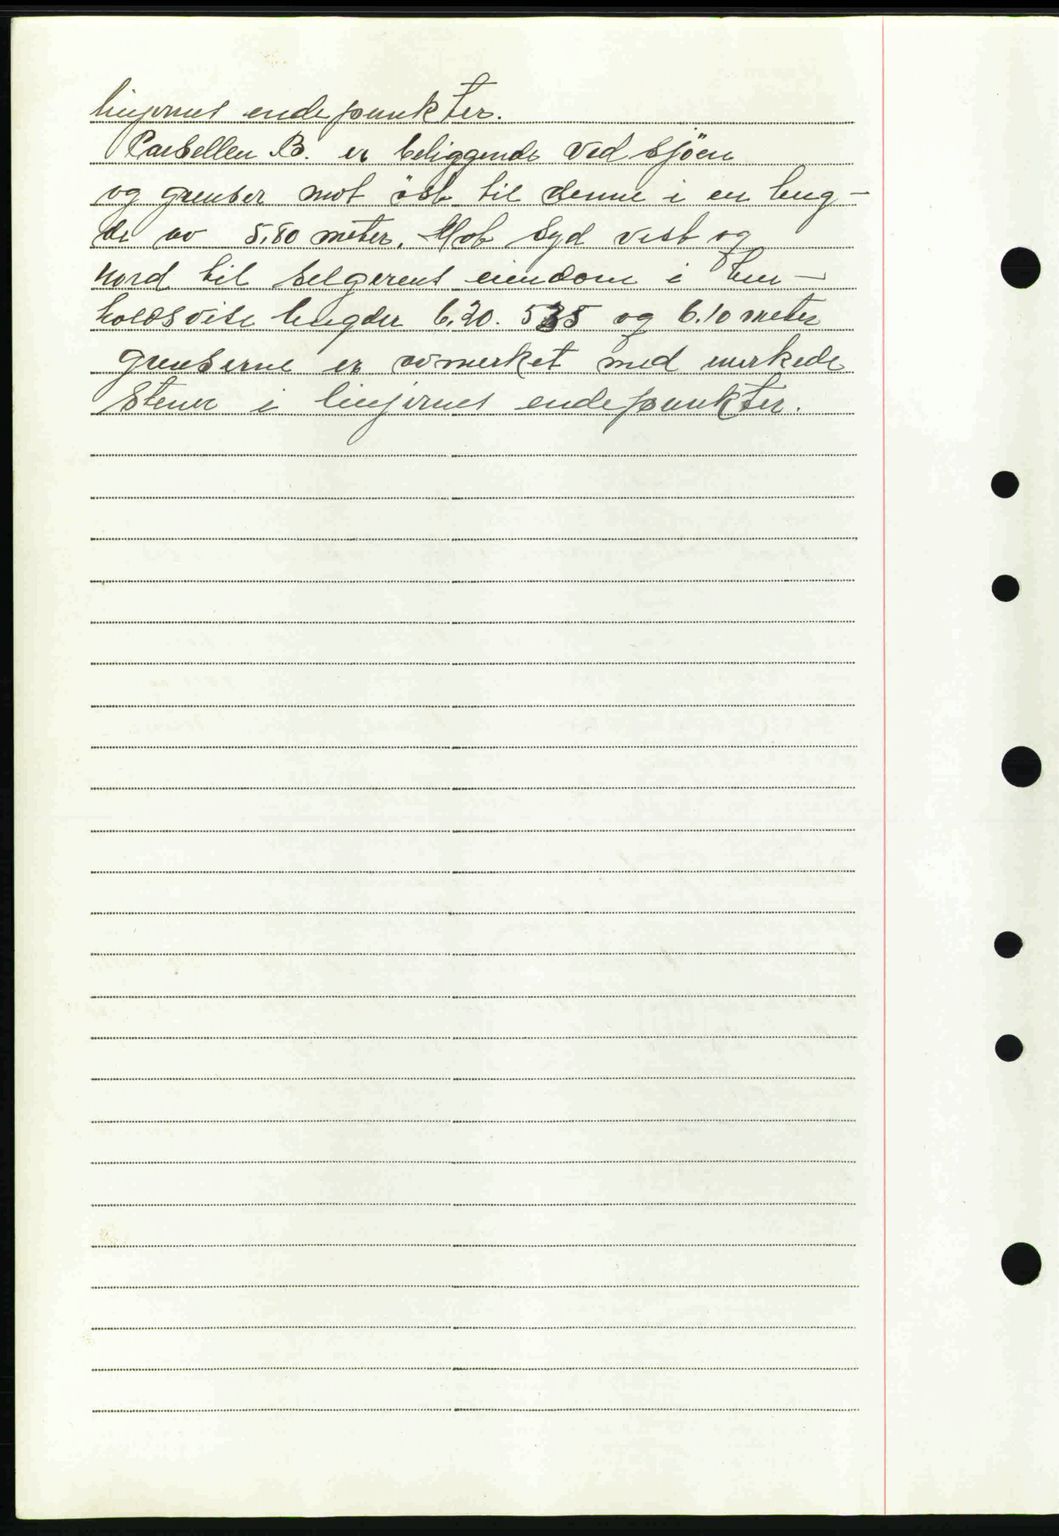 linjernes endepunkter.
Parsellen B. er beliggende ved sjöen
og grenser mot öst til denne i en leng-
de av 5,80 meter. Mot syd vest og
nord til selgerens eiendom i hen-
holdsvise lengder 6.20. 535 og 6.10 meter
grenserne er avmerket med merkede
stener i linjernes endepunkter.